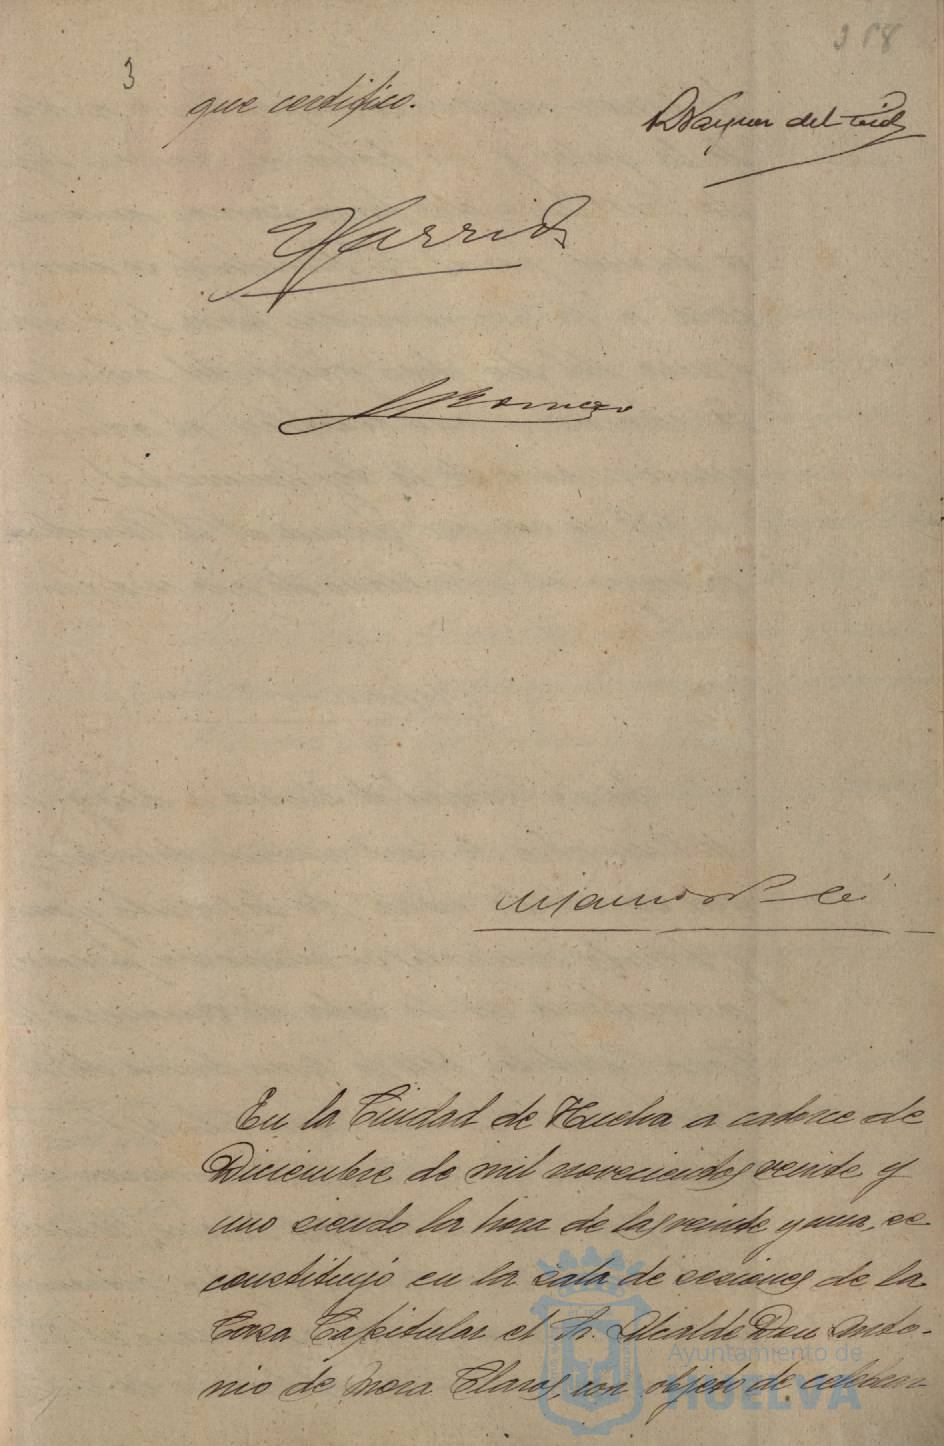 3
que certifico.
Garrido
Romero
En la Ciudad de Huelva a catorce de
Diciembre de mil novecientos veinte y
uno siendo la hora de las veinte y una, se
constituyó en la sala de sesiones de la
Casa Capitular el Sr. Alcalde Don Anto-
nio de Mora Claros, con objeto de celebrar
Ayuntamiento de
HUELVA